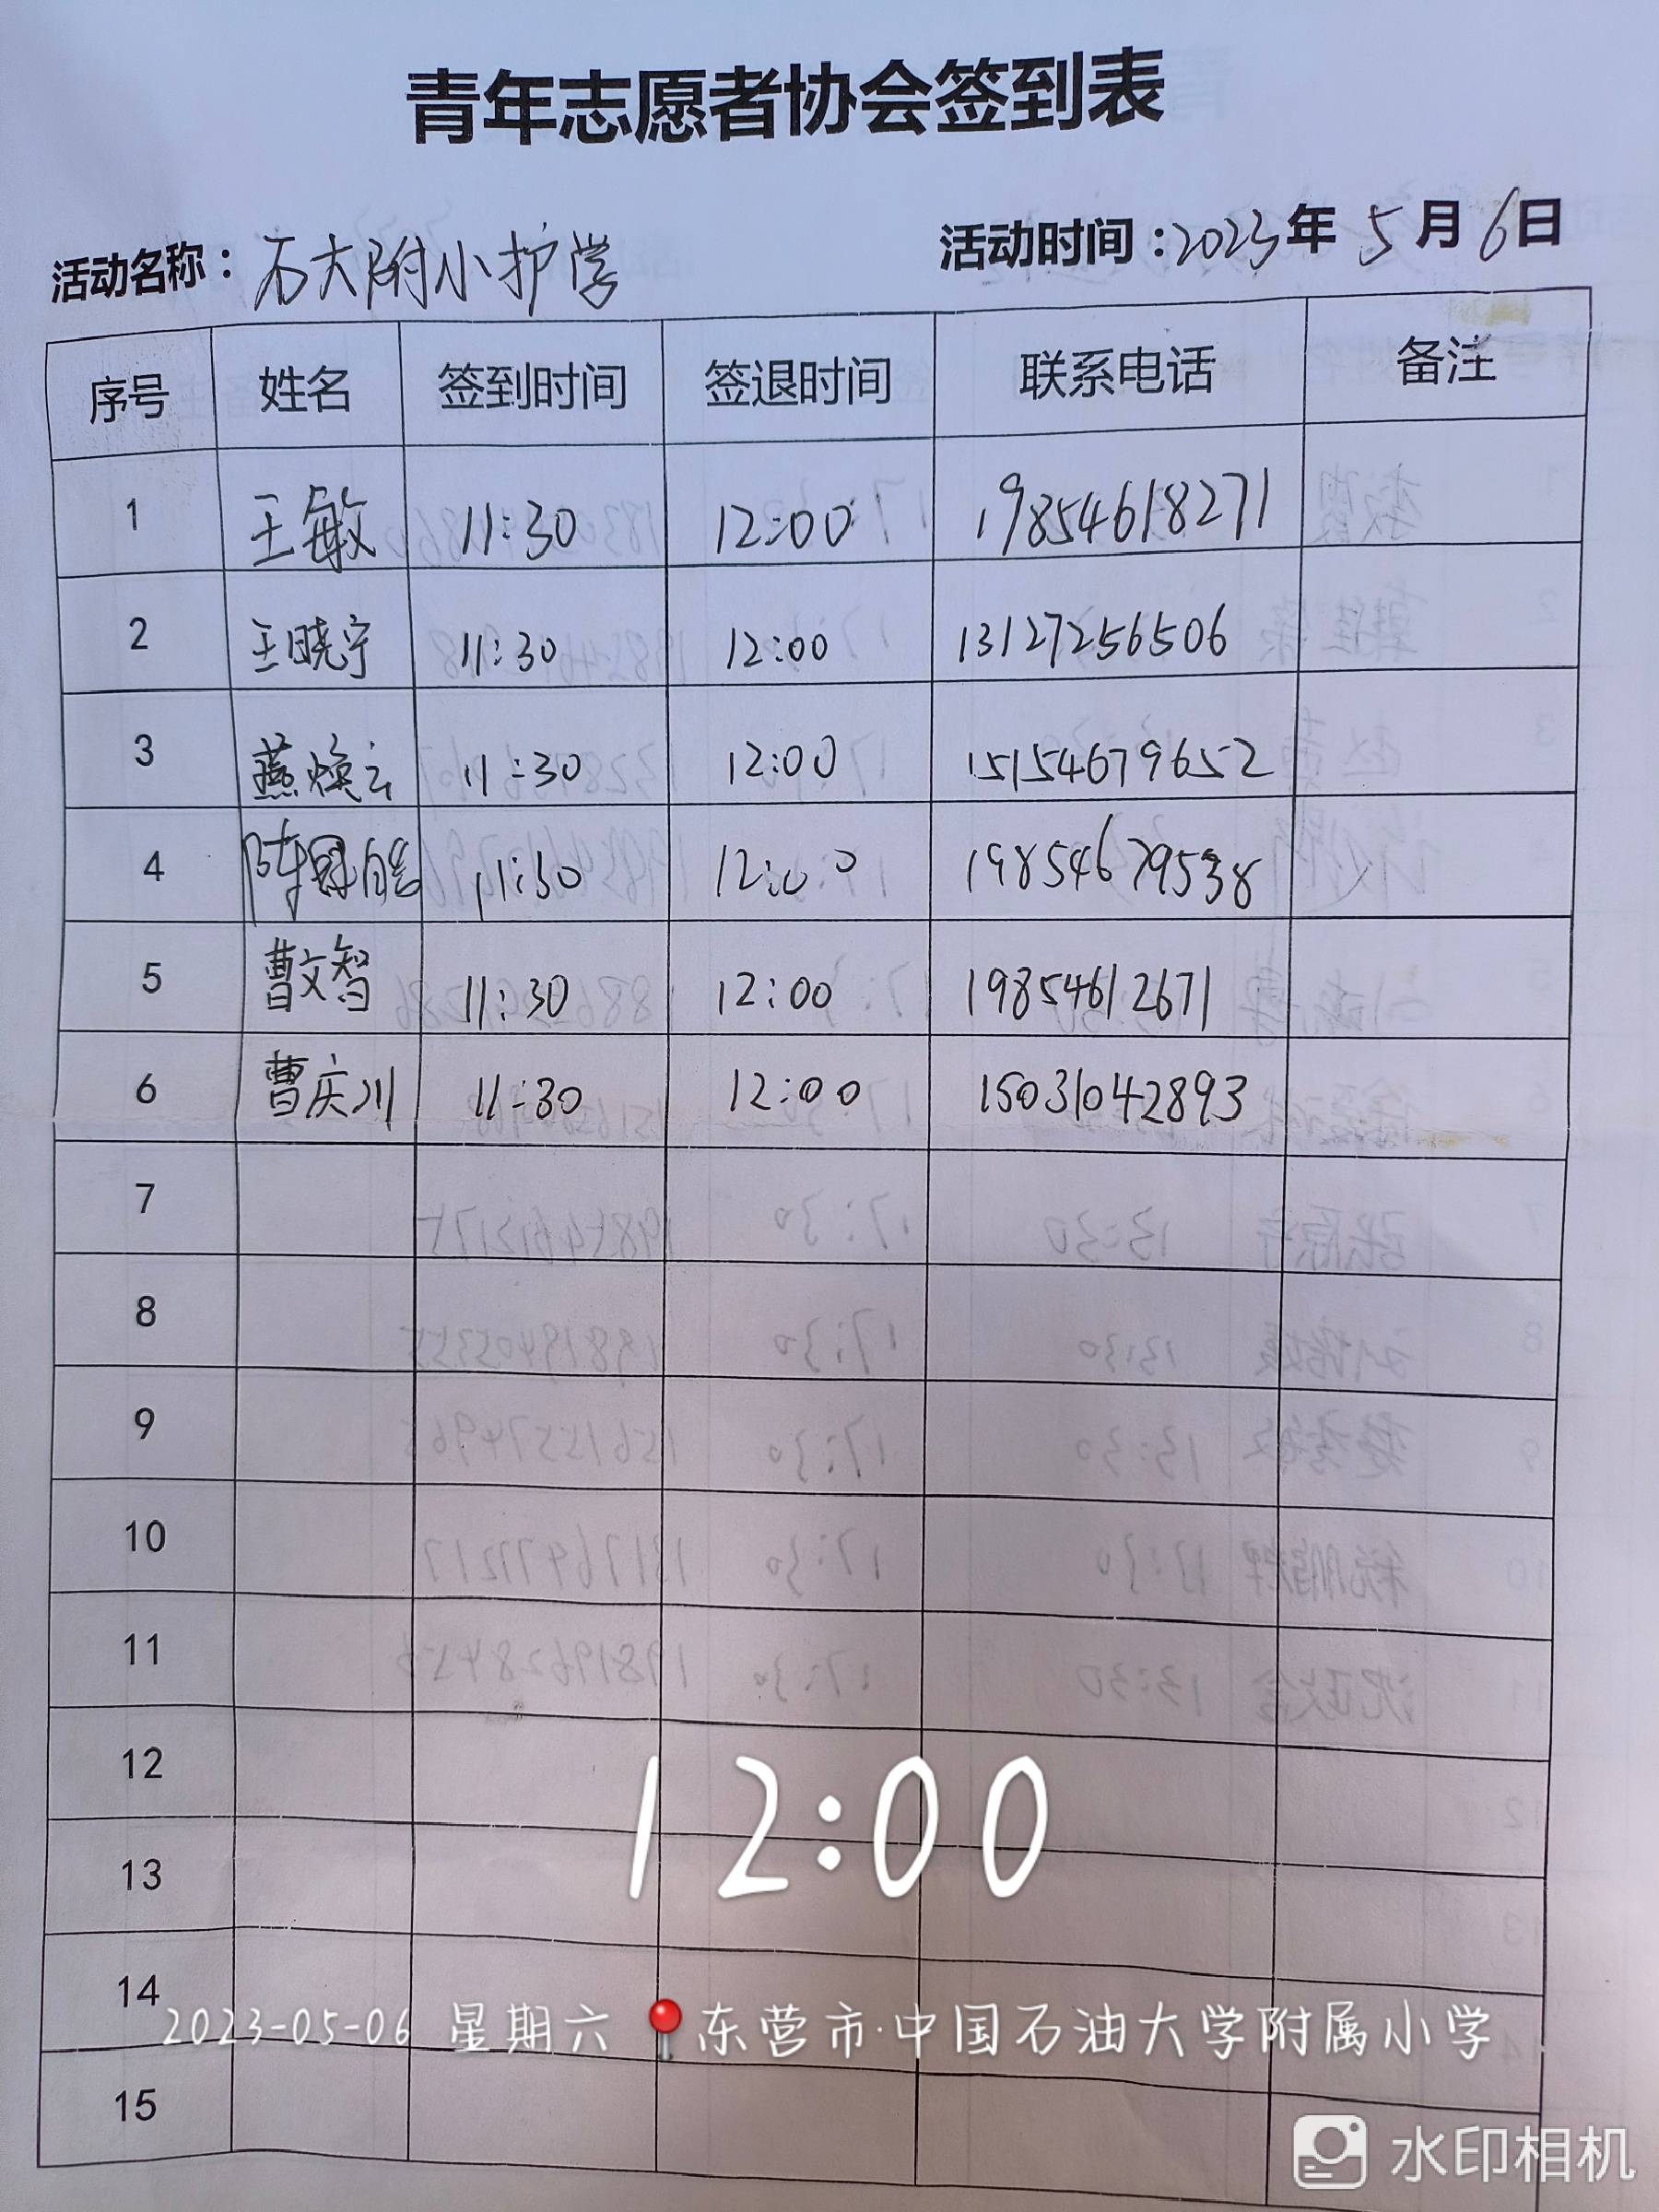 青年志愿者协会签到表
活动名称：石大附小护学 活动时间：2023年5月6日
序号 姓名 签到时间 签退时间 联系电话 备注
1 王敏 11:30 12:00 19854618271
2 王晓宁 11:30 12:00 13127256506
3 燕焕云 11:30 12:00 15154679652
4 11:30 12:00 19854679538
5 曹文智 11:30 12:00 19854612671
6 曹庆川 11:30 12:00 15031042893
7
8
9
10
11
12
12:00
13
14
2023-05-06 星期六 东营市·中国石油大学附属小学
15
水印相机